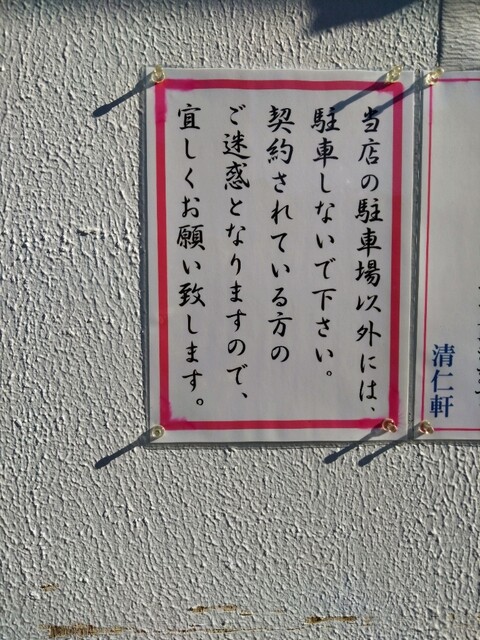 当店の駐車場以外には、
駐車しないで下さい。
契約されている方の
ご迷惑となりますので、
宜しくお願い致します。
清仁軒